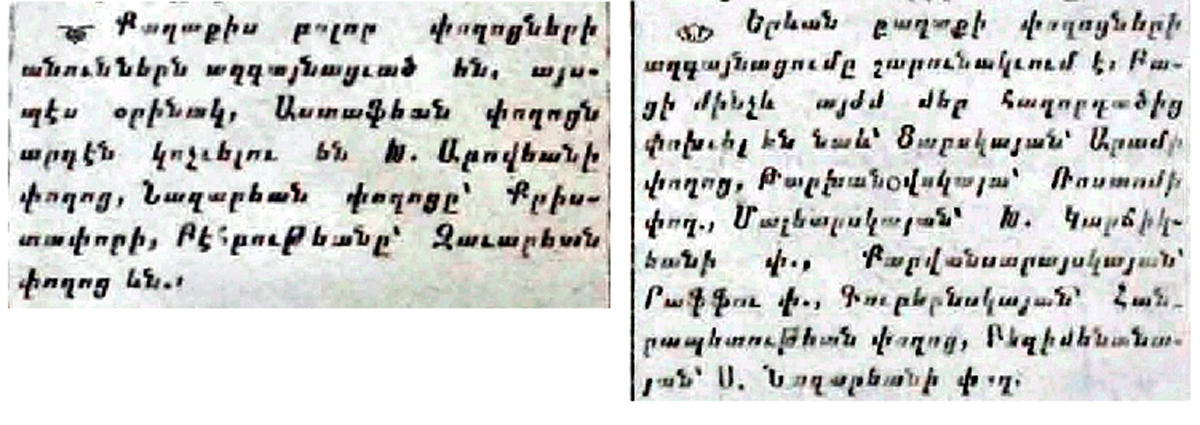 Քաղաքիս բոլոր փողոցների
անունները ազգայնացւած են. այս-
պէս օրինակ, Աստաֆեան փողոցն
արդէն կոչւելու են Խ. Աբովեանի
փողոց, Նազարեան փողոցը՝ Քրիս-
տափորի, Բէհբութեանը՝ Զաւարեան
փողոց ևն.։
Երևան քաղաքի փողոցների
ազգայնացումը շարունակւում է։ Բա-
ցի մինչև այժմ մեր հաղորդածից
փոխւել են նաև՝ Ցարսկայան՝ Արամի
փողոց, Թարխանովսկայա՝ Ռոստոմի
փող., Մալեարսկայան՝ Խ. Կարճիկ-
եանի փ., Քարվանսարայսկայան՝
Րաֆֆու փ., Գուբերնսկայան՝ Հան-
րապետութեան փողոց, Բեզիմենանա-
յան՝ Ս. Նազարեանի փող.